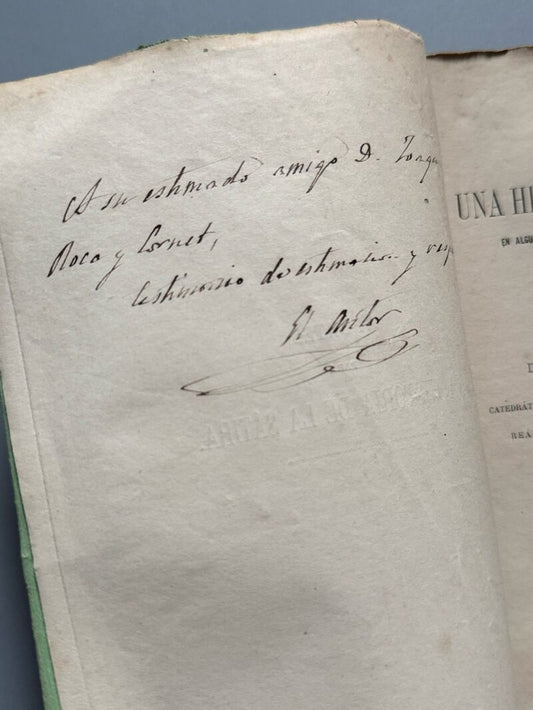 A su estimado amigo D. Joaqu
Roca y Cornet,
testimonio de estimacion y resp
El Autor
UNA HE
EN ALGU
D
CATEDRÁT
REA
DE LA